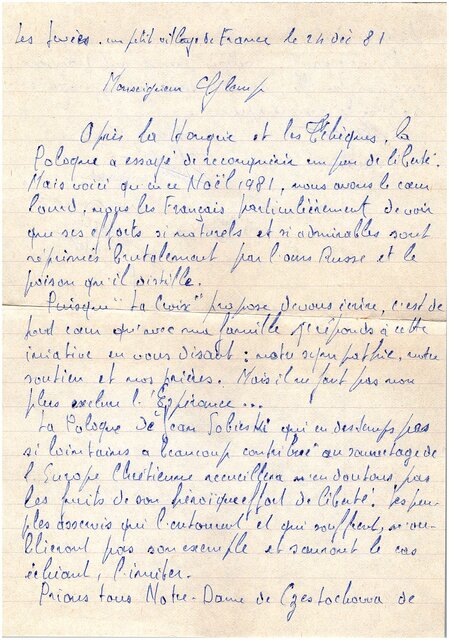 Les , un petit village de France le 24 déc 81
Monseigneur Glemp
Après la Hongrie et les Tchèques, la
Pologne a essayé de reconquérir un peu de liberté.
Mais voici qu'en ce Noël 1981, nous avons le cœur
lourd, nous les Français particulièrement de voir
que ses efforts si naturels et si admirables sont
réprimés brutalement par l'ours Russe et le
poison qu'il distille.
Puisque "La Croix" propose de vous écrire, c'est de
tout cœur qu'avec ma famille je réponds à cette
iniative en vous disant : notre sympathie, notre
soutien et nos prières. Mais il ne faut pas non
plus exclure l'Espérance...
La Pologne de Jean Sobieski qui en des temps pas
si lointains a beaucoup contribué au sauvetage de
l'Europe Chrétienne recueillera n'en doutons pas
les fruits de son héroïque effort de liberté. Les peu-
ples asservis qui l'entourent et qui souffrent, n'ou-
blieront pas son exemple et sauront le cas
échéant, l'imiter.
Prions tous Notre-Dame de Czestochowa de